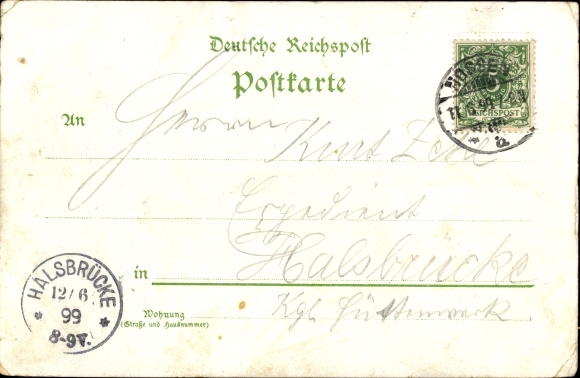 Deutsche Reichspost
Postkarte
5
REICHSPOST
An
Herrn
Kurt
Expedient
in Halsbrücke
Wohnung
(Straße und Hausnummer)
Kgl. Hüttenwerk.
HALSBRÜCKE
12/6
99
8-9V.